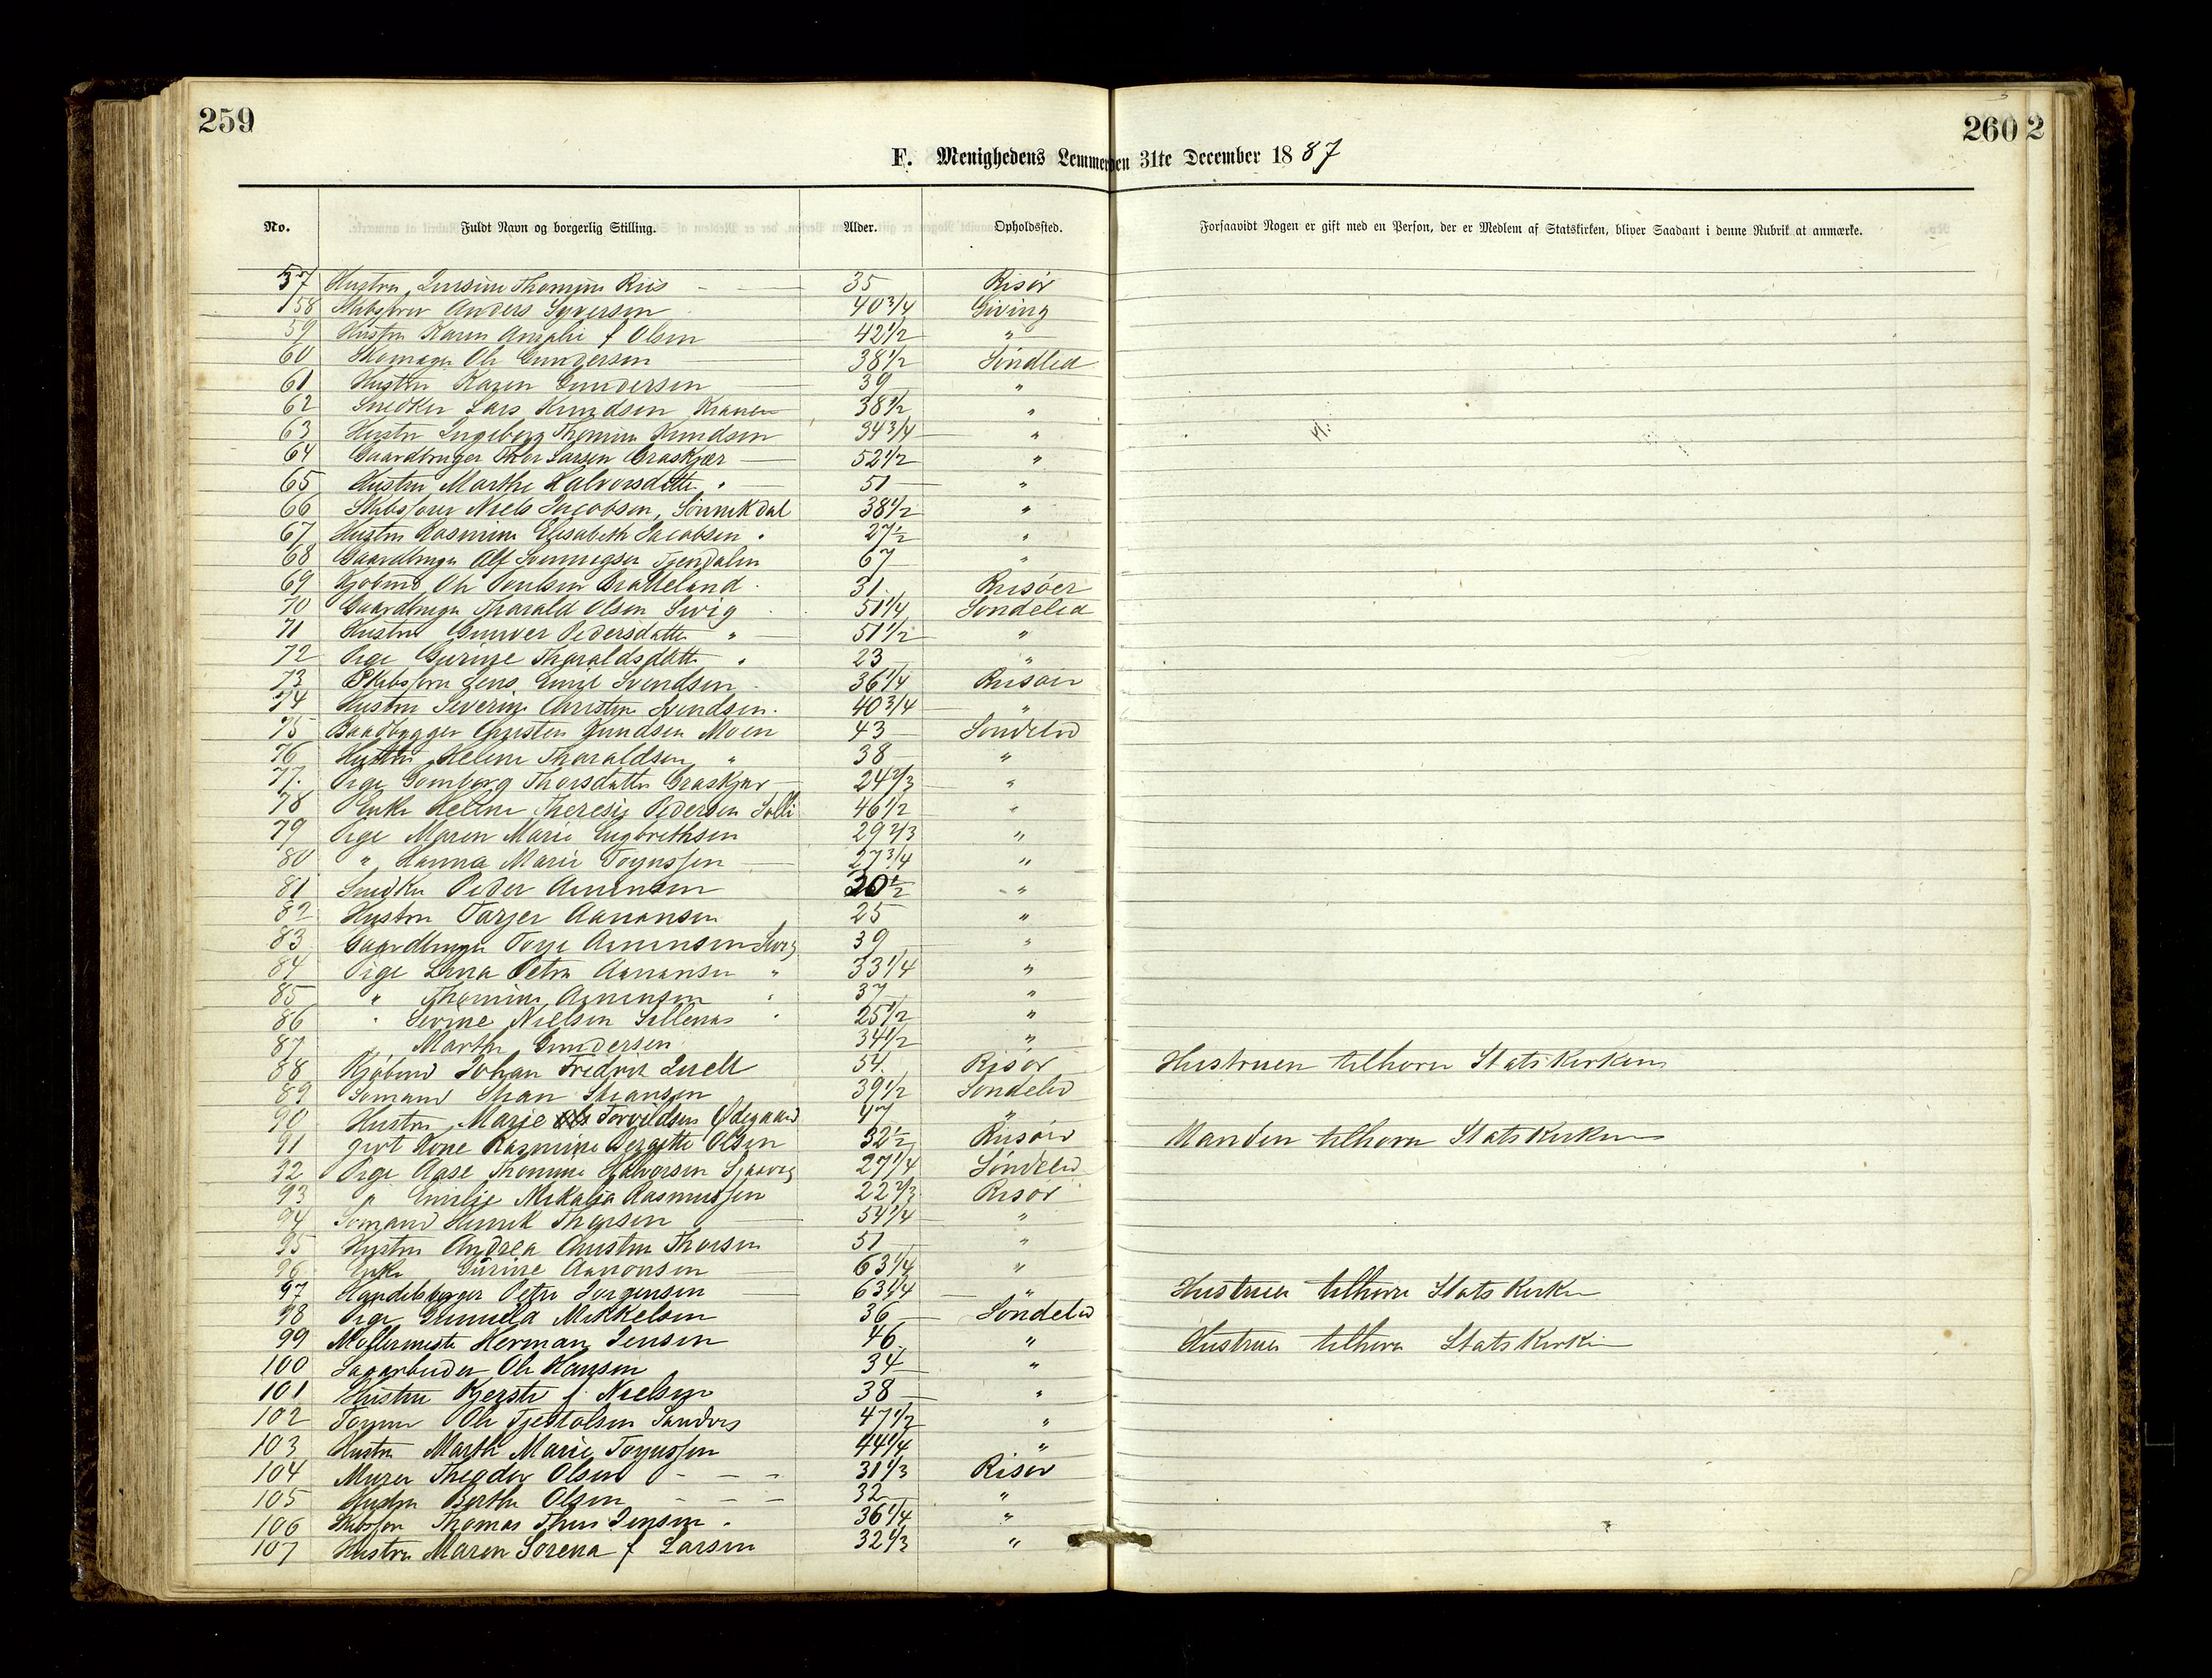 259
260 2
F. Menighedens Lemmer den 31te December 1887
No. Fuldt Navn og borgerlig Stilling. Alder. Opholdssted. Forsaavidt Nogen er gift med en Person, der er Medlem af Statskirken, bliver Saadant i denne Rubrik at anmærke.
57 Hustru Thomine Riis 35 Risør
58 Skibsfører Anders Syversen 40 3/4 Giving
59 Hustru Karen Amalie f Olsen 42 1/2 "
60 Skomager Ole Gundersen 38 1/2 Søndled
61 Hustru Karen Gundersen 39 "
62 Snedker Lars Knudsen 38 1/2 "
63 Hustru Ingeborg Thomine Knudsen 34 3/4 "
64 Gaardbruger Thor Larsen Graskjær 52 1/2 "
65 Hustru Marthe Halvorsdatter " 51 "
66 Skibsfører Niels Jacobsen, 38 1/2 "
67 Hustru Rasmine Elisabeth Jacobsen " 27 1/2 "
68 Gaardbruger Alf 67 "
69 Kjøbmd Ole Poulsen Bratteland 31 Risøer
70 Gaardbruger Tharald Olsen Sivig 51 1/4 Søndeled
71 Hustru Gunver Pedersdatter " 51 1/2 "
72 Pige Gurine Tharaldsdatter " 23 "
73 Skibsfører Jens Emil Svendsen 36 1/4 Risøer
74 Hustru Severine Christine Svendsen 40 3/4 "
75 Baadbygger Christen Knudsen Moen 43 Søndeled
76 Hustru Helene Tharaldsen " 38 "
77 Pige Gomborg Thorsdatter Graskjær 24 2/3 "
78 Enke Helene Theresie Pedersen 46 1/2 "
79 Pige Maren Marie Engbrethsen 29 2/3 "
80 " Hanna Marie Toynessen 27 3/4 "
81 Snedker Peder Aanonsen 30 1/2 "
82 Hustru Tarjer Aanonsen 25 "
83 Gaardbruger Torje Aanonsen Sivig 39 "
84 Pige Lena Petra Aanonsen " 33 1/4 "
85 " Thomine Aanonsen " 37 "
86 " Sevrine Nielsen 25 1/2 "
87 Marthe Gundersen 34 1/2 "
88 Kjøbmd Johan Fredrik 54 Risør Hustruen tilhører Statskirken
89 Sømand Stian Stiansen 39 1/2 Søndeled
90 Hustru Marie Torvildsen Ødegaard 47 "
91 givt Kone Rasmine Bergitte Olsen 32 1/2 Risøer Manden tilhører Statskirken
92 Pige Aase Thomine Halvorsen 27 1/4 Søndeled
93 " Emilje Mikalia Rasmussen 22 2/3 Risør
94 Sømand Henrik Thorsen 54 1/4 "
95 Hustru Andrea Christine Thorsen 51 "
96 Enke Gurine Aanonsen 63 1/4 "
97 Handelsborger Peter Jørgensen 63 1/4 " Hustruen tilhører Statskirken
98 Pige Gunnild Mikkelsen 36 Søndeled
99 Møllermester Herman Jensen 46 " Hustruen tilhører Statskirken
100 Sagarbeider Ole Hansen 34 "
101 Hustru Kjerste f. Nielsen 38 "
102 Ole Tjestolsen 47 1/2 "
103 Hustru Marthe Marie Toynessen 44 1/4 "
104 Murer Theodor Olsen 31 1/3 Risør
105 Hustru Berthe Olsen 32 "
106 Skibsfør Thomas Jensen 36 1/4 "
107 Hustru Maren Sorena f Larsen 32 1/3 "